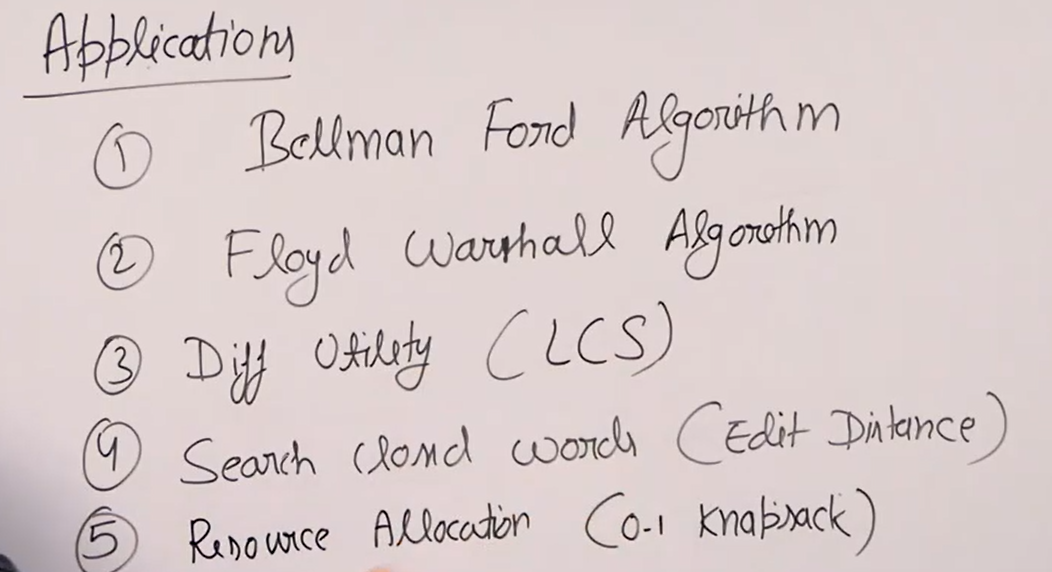 Applications
① Bellman Ford Algorithm
② Floyd Warshall Algorithm
③ Diff Utility (LCS)
④ Search Closed words (Edit Distance)
⑤ Resource Allocation (0-1 Knapsack)